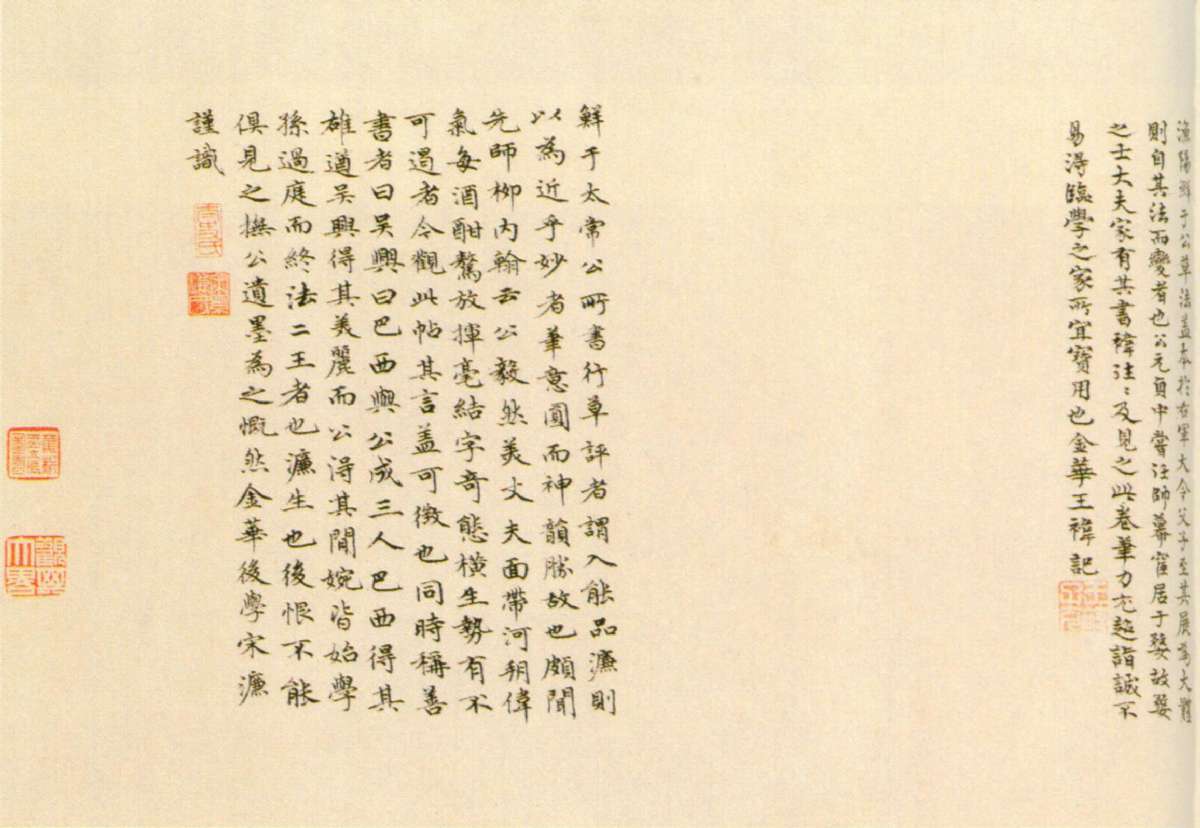 漁陽鮮于公草法盖本於右軍大令父子至其展為大體
則自其法而變者也公元貞中嘗注帥幕寓居于婺故婺
之士大夫家有其書褘注〻及見之此卷筆力尤遒詣誠不
易得臨學之家所宜寶用也金華王褘記
鮮于太常公所書行草評者謂入能品濂則
以為近乎妙者筆意圓而神韻勝故也頗聞
先師柳内翰云公毅然美丈夫面帶河朔偉
氣每酒酣驁放揮毫結字奇態橫生勢有不
可遏者令觀此帖其言盖可徵也同時稱善
書者曰吴興曰巴西與公成三人巴西得其
雄遒吴興得其美麗而公得其閒婉皆始學
孫過庭而終法二王者也濂生也後恨不能
俱見之撫公遺墨為之慨然金華後學宋濂
謹識